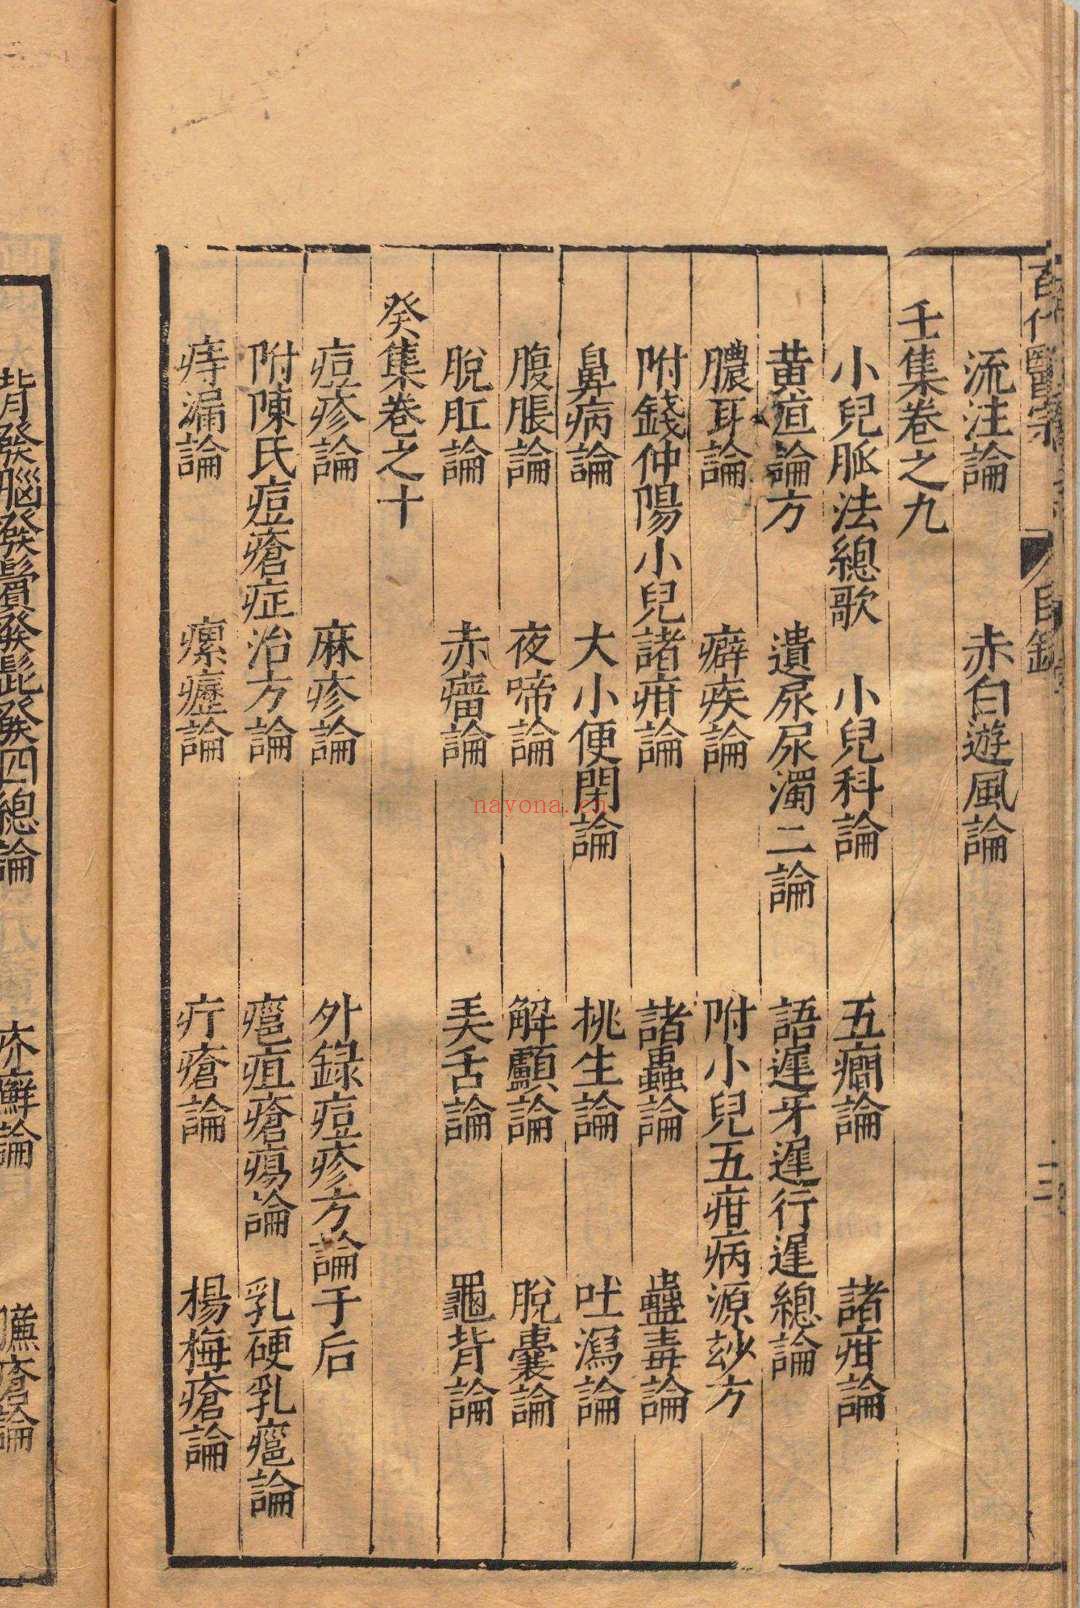 百代醫宗 目錄 三
流注論 赤白遊風論
壬集卷之九
小兒脈法總歌 小兒科論 五癇論 諸疳論
黄疸論方 遺尿尿濁二論 語遲牙遲行遲總論
膿耳論 癖疾論 附小兒五疳病源玅方
附錢仲陽小兒諸疳論 諸蟲論 蠱毒論
鼻病論 大小便閉論 挑生論 吐瀉論
腹脹論 夜啼論 解顱論 脫囊論
脫肛論 赤瘤論 弄舌論 龜背論
癸集卷之十
痘疹論 麻疹論 外錄痘疹方論于后
附陳氏痘瘡症治方論 癰疽瘡瘍論 乳硬乳癰論
痔漏論 瘰癧論 疔瘡論 楊梅瘡論
背發腦發鬢發髭發四總論 疥癬論 臁瘡論
nayona.cn